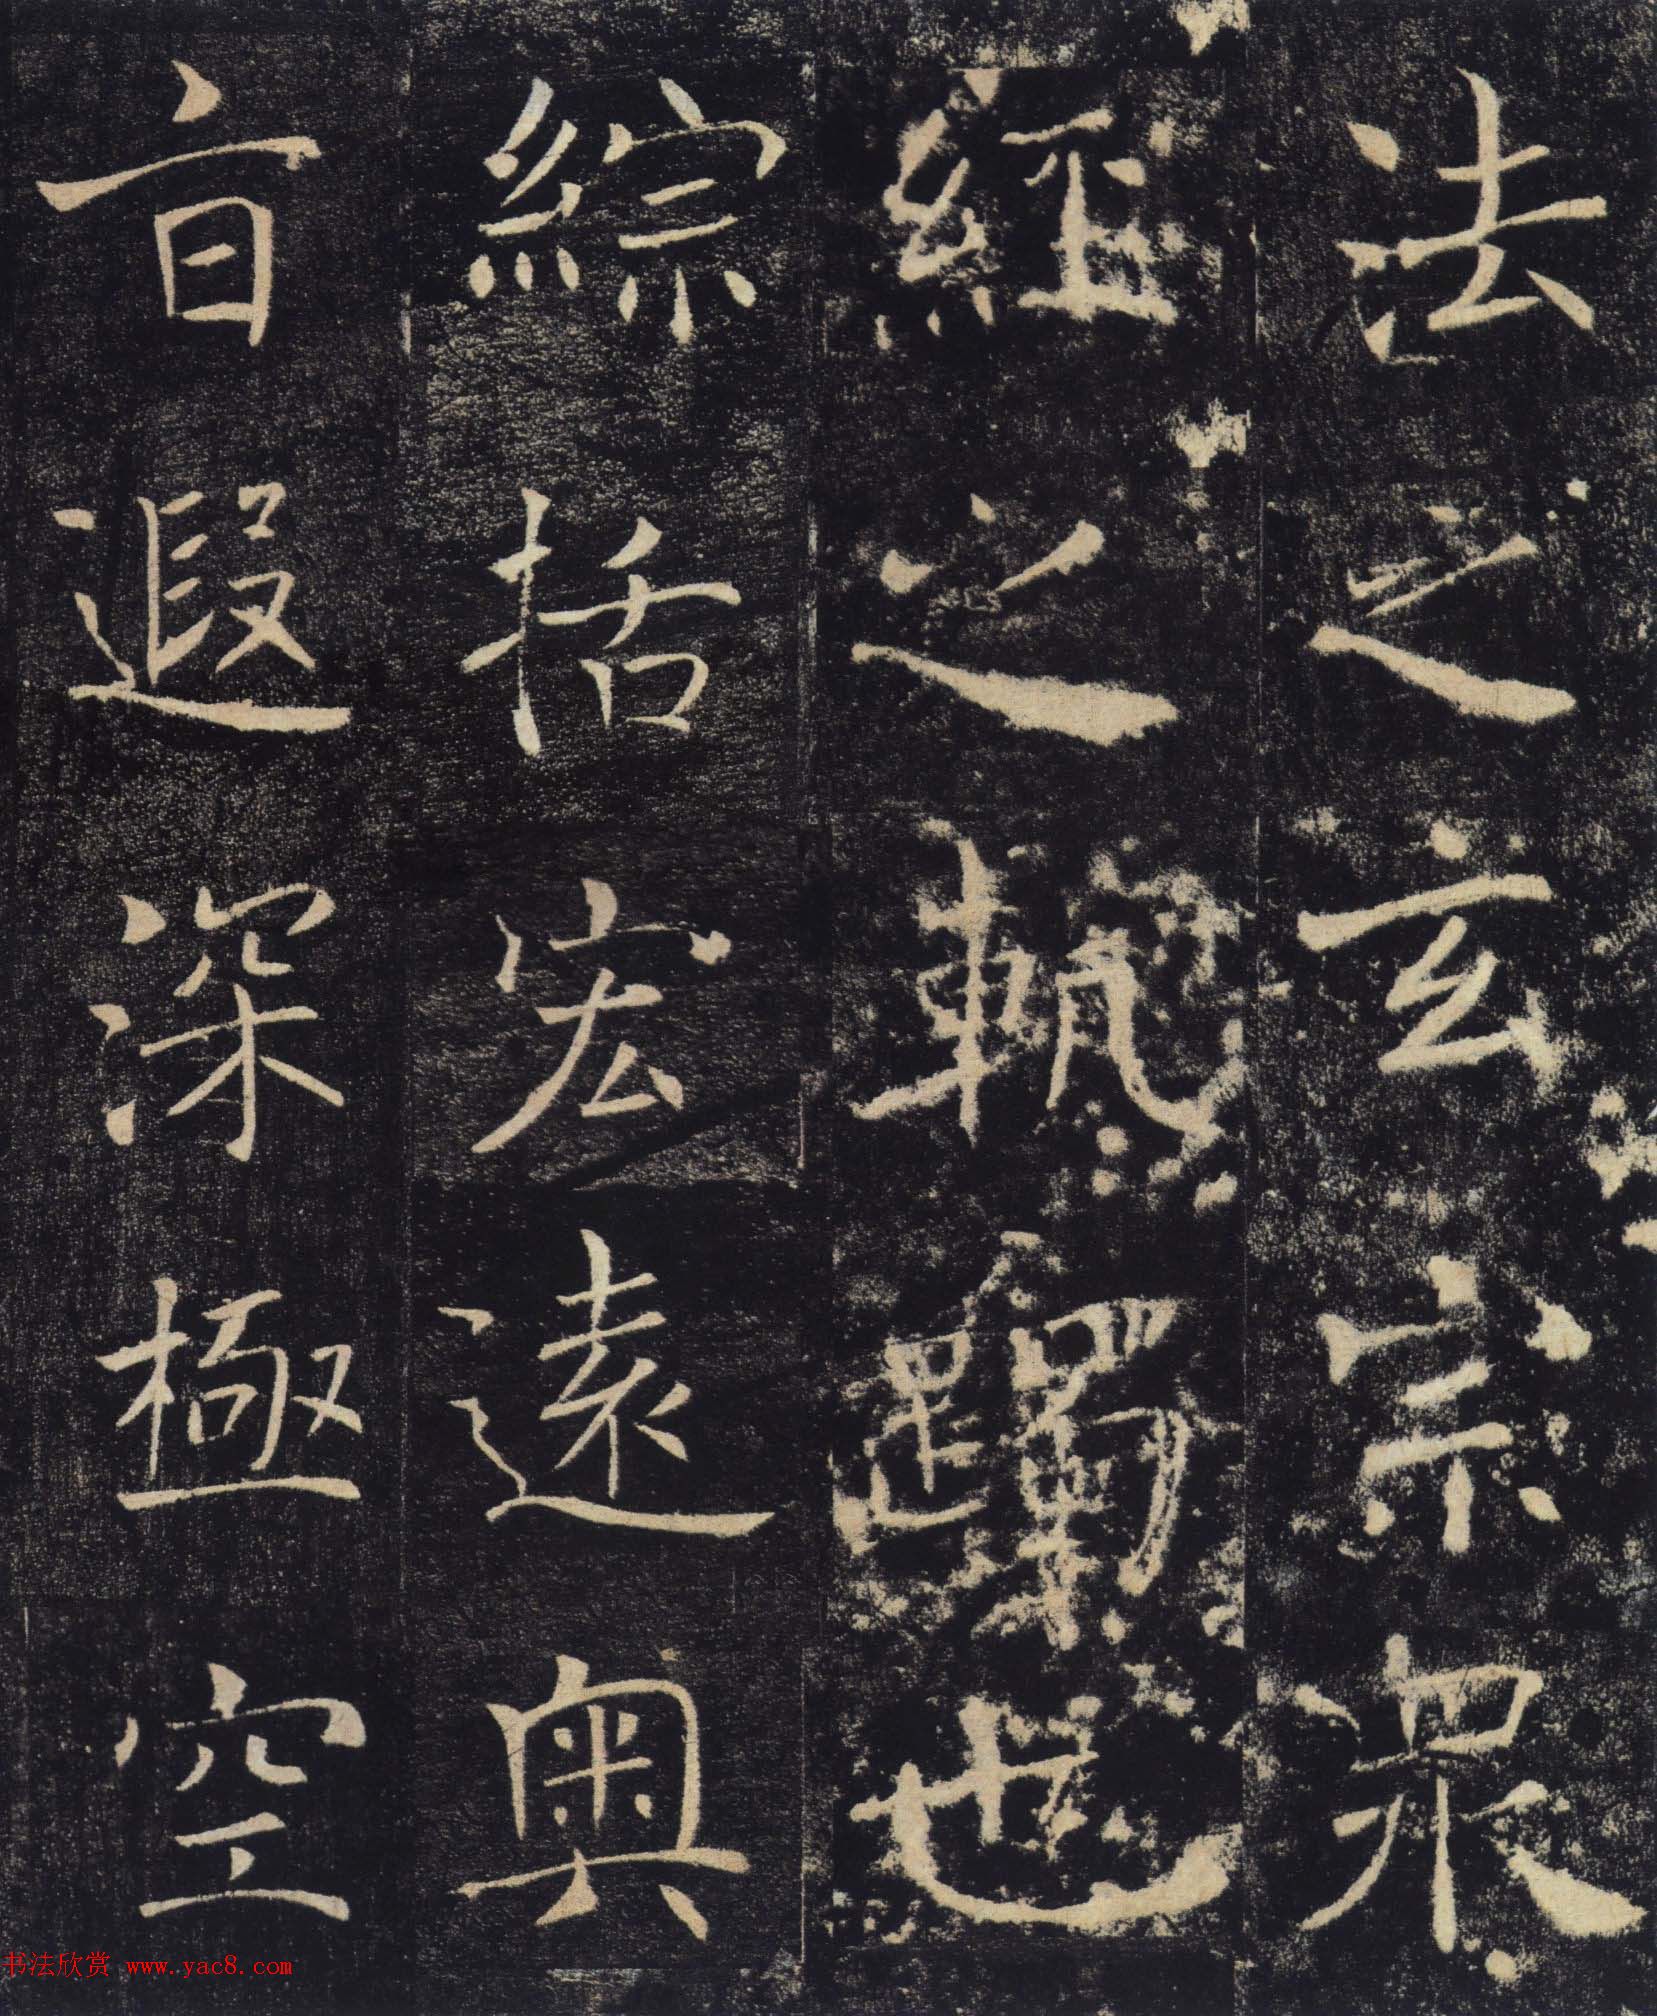 法之玄宗衆
經之軌躅也
綜括宏遠奧
旨遐深極空
书法欣赏 www.yac8.com